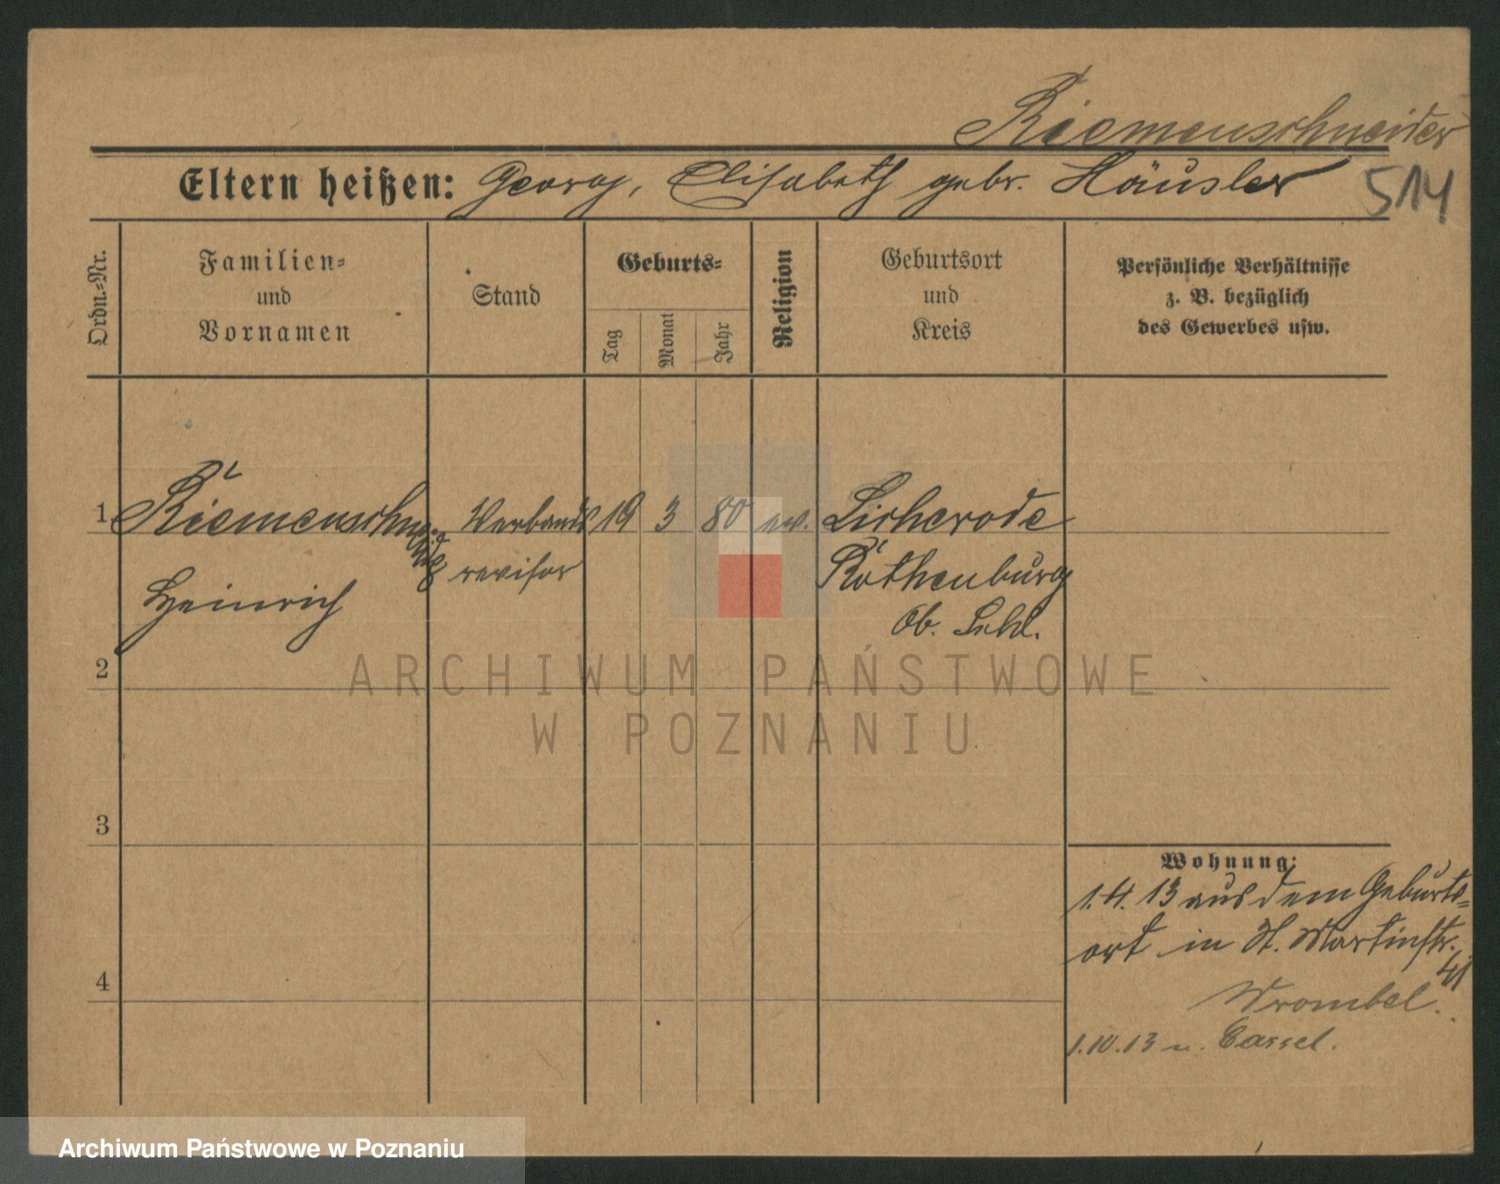 Riemenschneider
Eltern heißen: Georg, Elisabeth gebr. Häusler
514
Ordn.-Nr.
Familien-
und
Vornamen
Stand
Geburts-
Tag
Monat
Jahr
Religion
Geburtsort
und
Kreis
Persönliche Verhältnisse
z. B. bezüglich
des Gewerbes usw.
1 Riemenschneider Verbands 19 3 80 ev. Licherode
Heinrich revisor Rothenburg
Ob.
2
ARCHIWUM PAŃSTWOWE
W POZNANIU
3
4
Wohnung:
1.4.13 aus dem Geburts-
ort in St. Martinstr.
41
Wrombel.
1.10.13 n. Cassel.
Archiwum Państwowe w Poznaniu